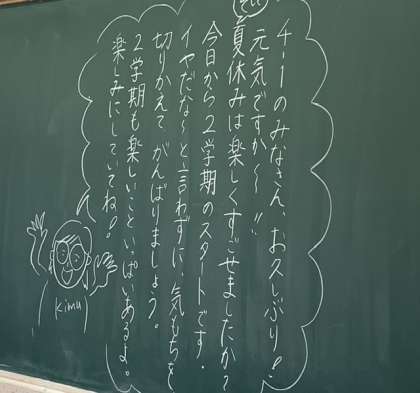 4-1のみなさん、お久しぶり!
元気ですか〜!!
夏休みは楽しくすごせましたか?
今日から2学期のスタートです。
イヤだな〜と言わずに、気もちを
切りかえて がんばりましょう。
2学期も楽しいこといっぱいあるよ。
楽しみにしていてね!。
Kimu